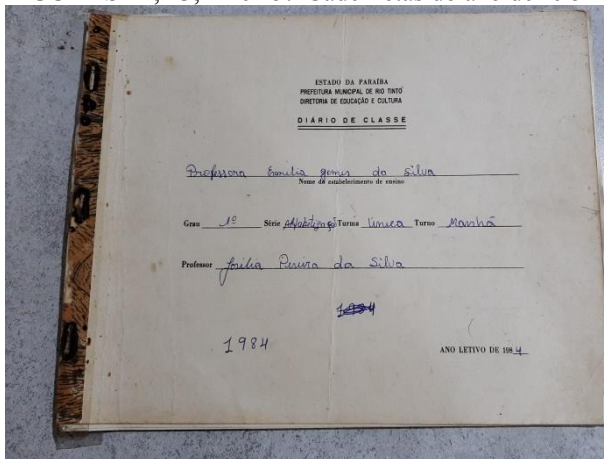 ESTADO DA PARAÍBA
PREFEITURA MUNICIPAL DE RIO TINTO
DIRETORIA DE EDUCAÇÃO E CULTURA
DIÁRIO DE CLASSE
Professora Emilia gomes da silva
Nome do estabelecimento de ensino
Grau 1º Série Alfabetização Turma Única Turno Manhã
Professor Josilia Pereira da Silva
1984
1984 ANO LETIVO DE 1984